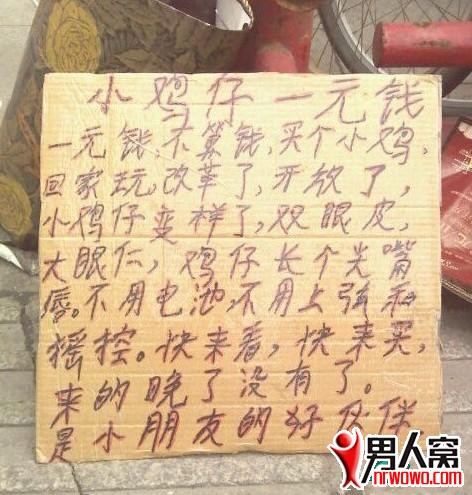 小鸡仔一元钱
一元钱,不算钱,买个小鸡,
回家去玩,改革了,开放了,
小鸡仔变样了,双眼皮,
大眼仁,鸡仔长个尖嘴
唇。不用电池,不用上弦和
摇控。快来看,快来买,
来的晚了没有了。
是小朋友的好伙伴
男人窝
nrwowo.com